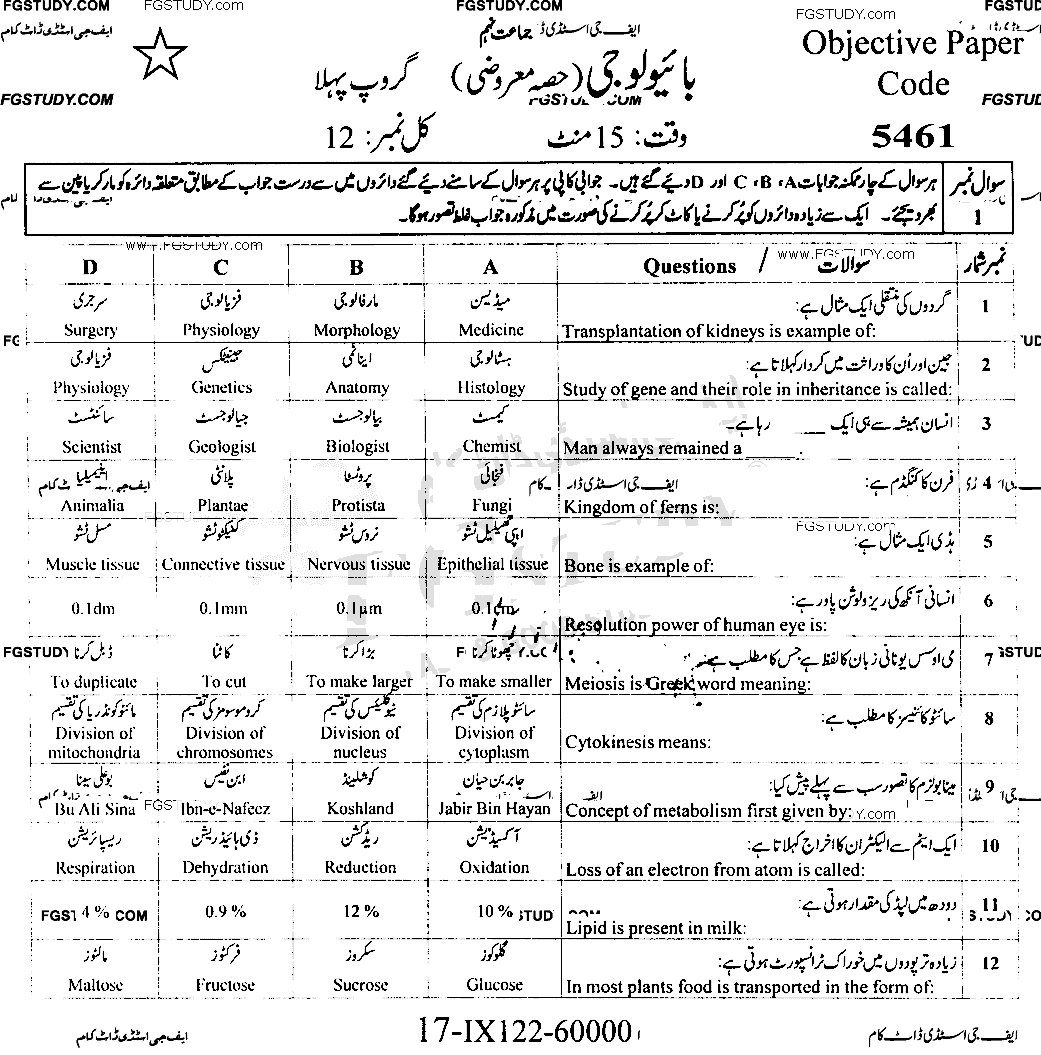 FGSTUDY.COM FGSTUDY.COM FGSTUDY.COM FGSTUD
ایف جی اسٹڈی ڈاٹ کام
ایف جی اسٹڈی ڈ
جماعت نہم
Objective Paper
Code
5461
بائیولوجی (حصہ معروضی) گروپ پہلا
FGSTUDY.COM FGSTUD
وقت: 15 منٹ کل نمبر: 12
سوال نمبر 1
ہر سوال کے چار ممکنہ جوابات A، B، C اور D دیے گئے ہیں۔ جوابی کاپی پر ہر سوال کے سامنے دیے گئے دائروں میں سے درست جواب کے مطابق متعلقہ دائرہ کو مارکر یا پین سے
بھر دیجئے۔ ایک سے زیادہ دائروں کو پُر کرنے یا کاٹ کر پُر کرنے کی صورت میں مذکورہ جواب غلط تصور ہوگا۔
www.FGSTUDY.com www.FGSTUDY.com
D C B A Questions / سوالات نمبر شمار
سرجری فزیالوجی مارفالوجی میڈیسن گردوں کی منتقلی ایک مثال ہے: 1
Surgery Physiology Morphology Medicine Transplantation of kidneys is example of:
فزیالوجی جینیٹکس اناٹمی ہسٹالوجی جین اور اُن کا وراثت میں کردار کہلاتا ہے: 2
Physiology Genetics Anatomy Histology Study of gene and their role in inheritance is called:
سائنٹسٹ جیالوجسٹ بیالوجسٹ کیمسٹ انسان ہمیشہ سے ہی ایک ____ رہا ہے۔ 3
Scientist Geologist Biologist Chemist Man always remained a ______ .
اینیمیلیا پلانٹی پروٹسٹا فنجائی فرن کا کنگڈم ہے: 4
Animalia Plantae Protista Fungi Kingdom of ferns is:
FGSTUDY.com
مسل ٹشو کنیکٹو ٹشو نروس ٹشو اپی تھیلیل ٹشو ہڈی ایک مثال ہے: 5
Muscle tissue Connective tissue Nervous tissue Epithelial tissue Bone is example of:
انسانی آنکھ کی ریزولوشن پاور ہے: 6
0.1dm 0.1mm 0.1µm 0.1cm Resolution power of human eye is:
ڈبل کرنا کاٹنا بڑا کرنا چھوٹا کرنا می اوسس یونانی زبان کا لفظ ہے جس کا مطلب ہے: 7
To duplicate To cut To make larger To make smaller Meiosis is Greek word meaning:
مائٹوکونڈریا کی تقسیم کروموسومز کی تقسیم نیوکلیئس کی تقسیم سائٹوپلازم کی تقسیم سائٹوکائنیسز کا مطلب ہے: 8
Division of mitochondria Division of chromosomes Division of nucleus Division of cytoplasm Cytokinesis means:
بوعلی سینا ابن نفیس کوشلینڈ جابر بن حیان میٹابولزم کا تصور سب سے پہلے پیش کیا: 9
Bu Ali Sina Ibn-e-Nafeez Koshland Jabir Bin Hayan Concept of metabolism first given by:
ریسپائریشن ڈی ہائیڈریشن ریڈکشن آکسیڈیشن ایک ایٹم سے الیکٹران کا اخراج کہلاتا ہے: 10
Respiration Dehydration Reduction Oxidation Loss of an electron from atom is called:
دودھ میں لپڈ کی مقدار ہوتی ہے: 11
4 % 0.9 % 12 % 10 % Lipid is present in milk:
مالٹوز فرکٹوز سکروز گلوکوز زیادہ تر پودوں میں خوراک ٹرانسپورٹ ہوتی ہے: 12
Maltose Fructose Sucrose Glucose In most plants food is transported in the form of:
ایف جی اسٹڈی ڈاٹ کام 17-IX122-60000 ایف جی اسٹڈی ڈاٹ کام